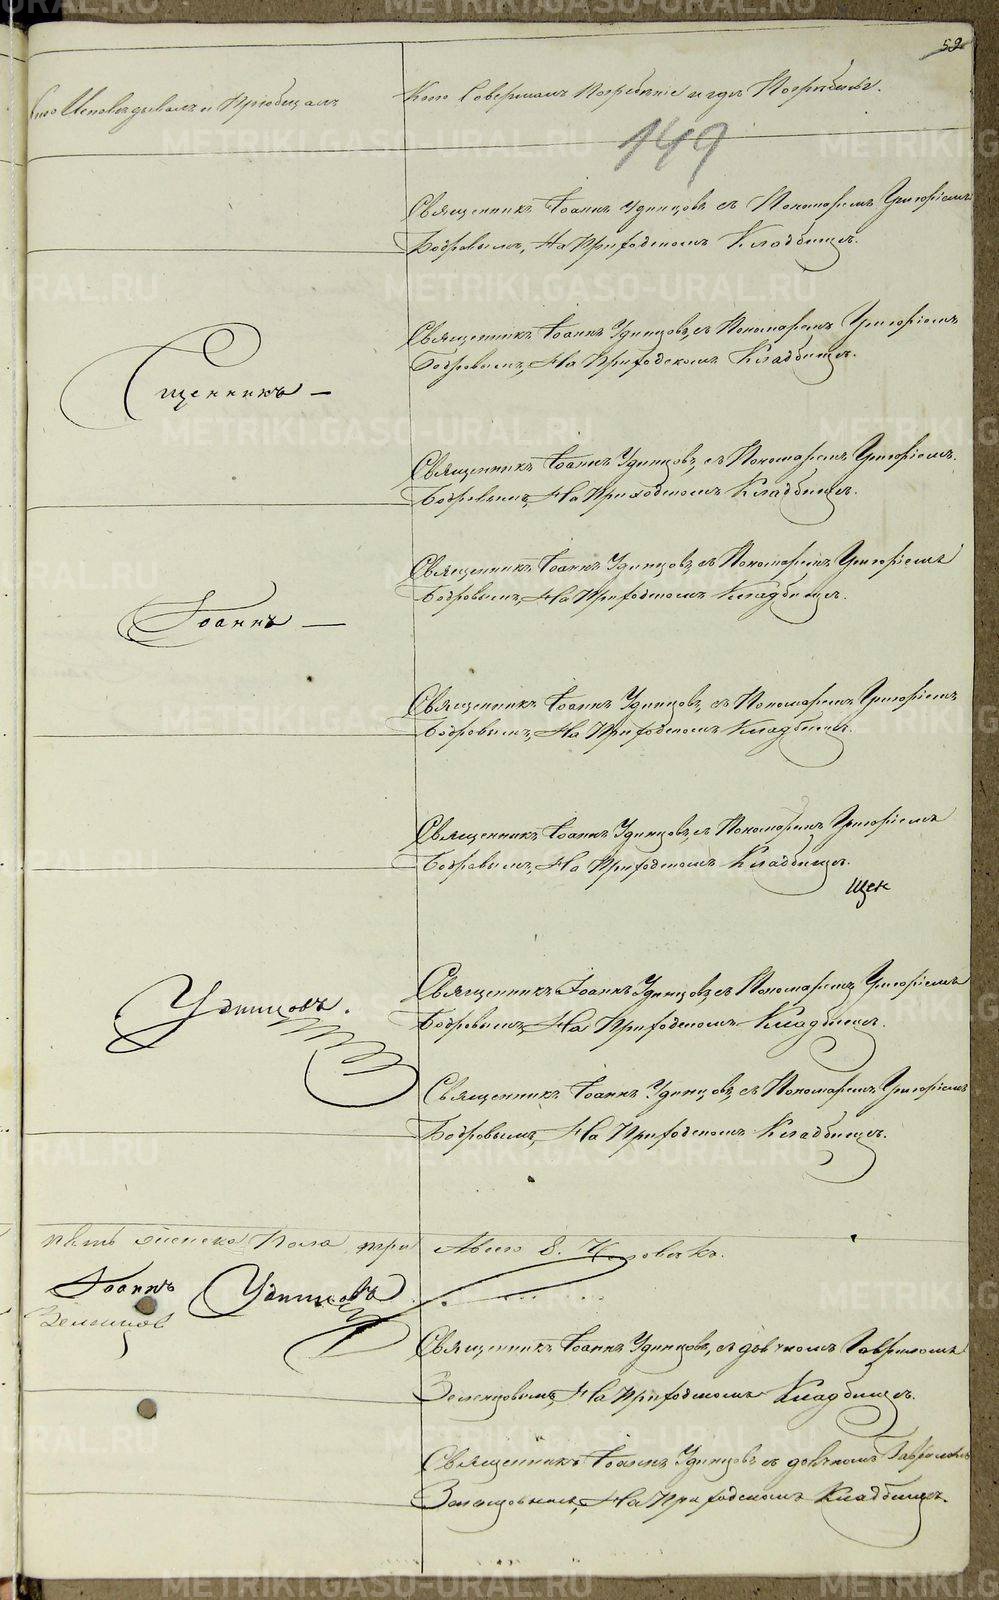 52
Кто Исповѣдывалъ и Пріобщалъ
Кто Совершалъ Погребеніе и гдѣ Погребены.
149
Священникъ Іоаннъ Удинцовъ съ Пономаремъ Григоріемъ
Бобровымъ, На Приходскомъ Кладбищѣ.
Священникъ Іоаннъ Удинцовъ, съ Пономаремъ Григоріемъ
Бобровымъ, На Приходскомъ Кладбищѣ.
Сщенникъ —
Священникъ Іоаннъ Удинцовъ, съ Пономаремъ Григоріемъ
Бобровымъ, На Приходскомъ Кладбищѣ.
Священникъ Іоаннъ Удинцовъ, съ Пономаремъ Григоріемъ
Бобровымъ, На Приходскомъ Кладбищѣ.
Іоаннъ —
Священникъ Іоаннъ Удинцовъ, съ Пономаремъ Григоріемъ
Бобровымъ, На Приходскомъ Кладбищѣ.
Священникъ Іоаннъ Удинцовъ, съ Пономаремъ Григоріемъ
Бобровымъ, На Приходскомъ Кладбищѣ.
Священникъ Іоаннъ Удинцовъ, съ Пономаремъ Григоріемъ
Бобровымъ, На Приходскомъ Кладбищѣ.
Удинцовъ.
Священникъ Іоаннъ Удинцовъ, съ Пономаремъ Григоріемъ
Бобровымъ, На Приходскомъ Кладбищѣ.
пять женска Пола три Авсего 8. Человѣкъ.
Іоаннъ Удинцовъ
Зеленцов
Священникъ Іоаннъ Удинцовъ, съ дьячкомъ Гавриломъ
Зеленцовымъ, На Приходскомъ Кладбищѣ.
Священникъ Іоаннъ Удинцовъ съ дьячкомъ Гавриломъ
Зеленцовымъ, На Приходскомъ Кладбищѣ.
METRIKI.GASO-URAL.RU